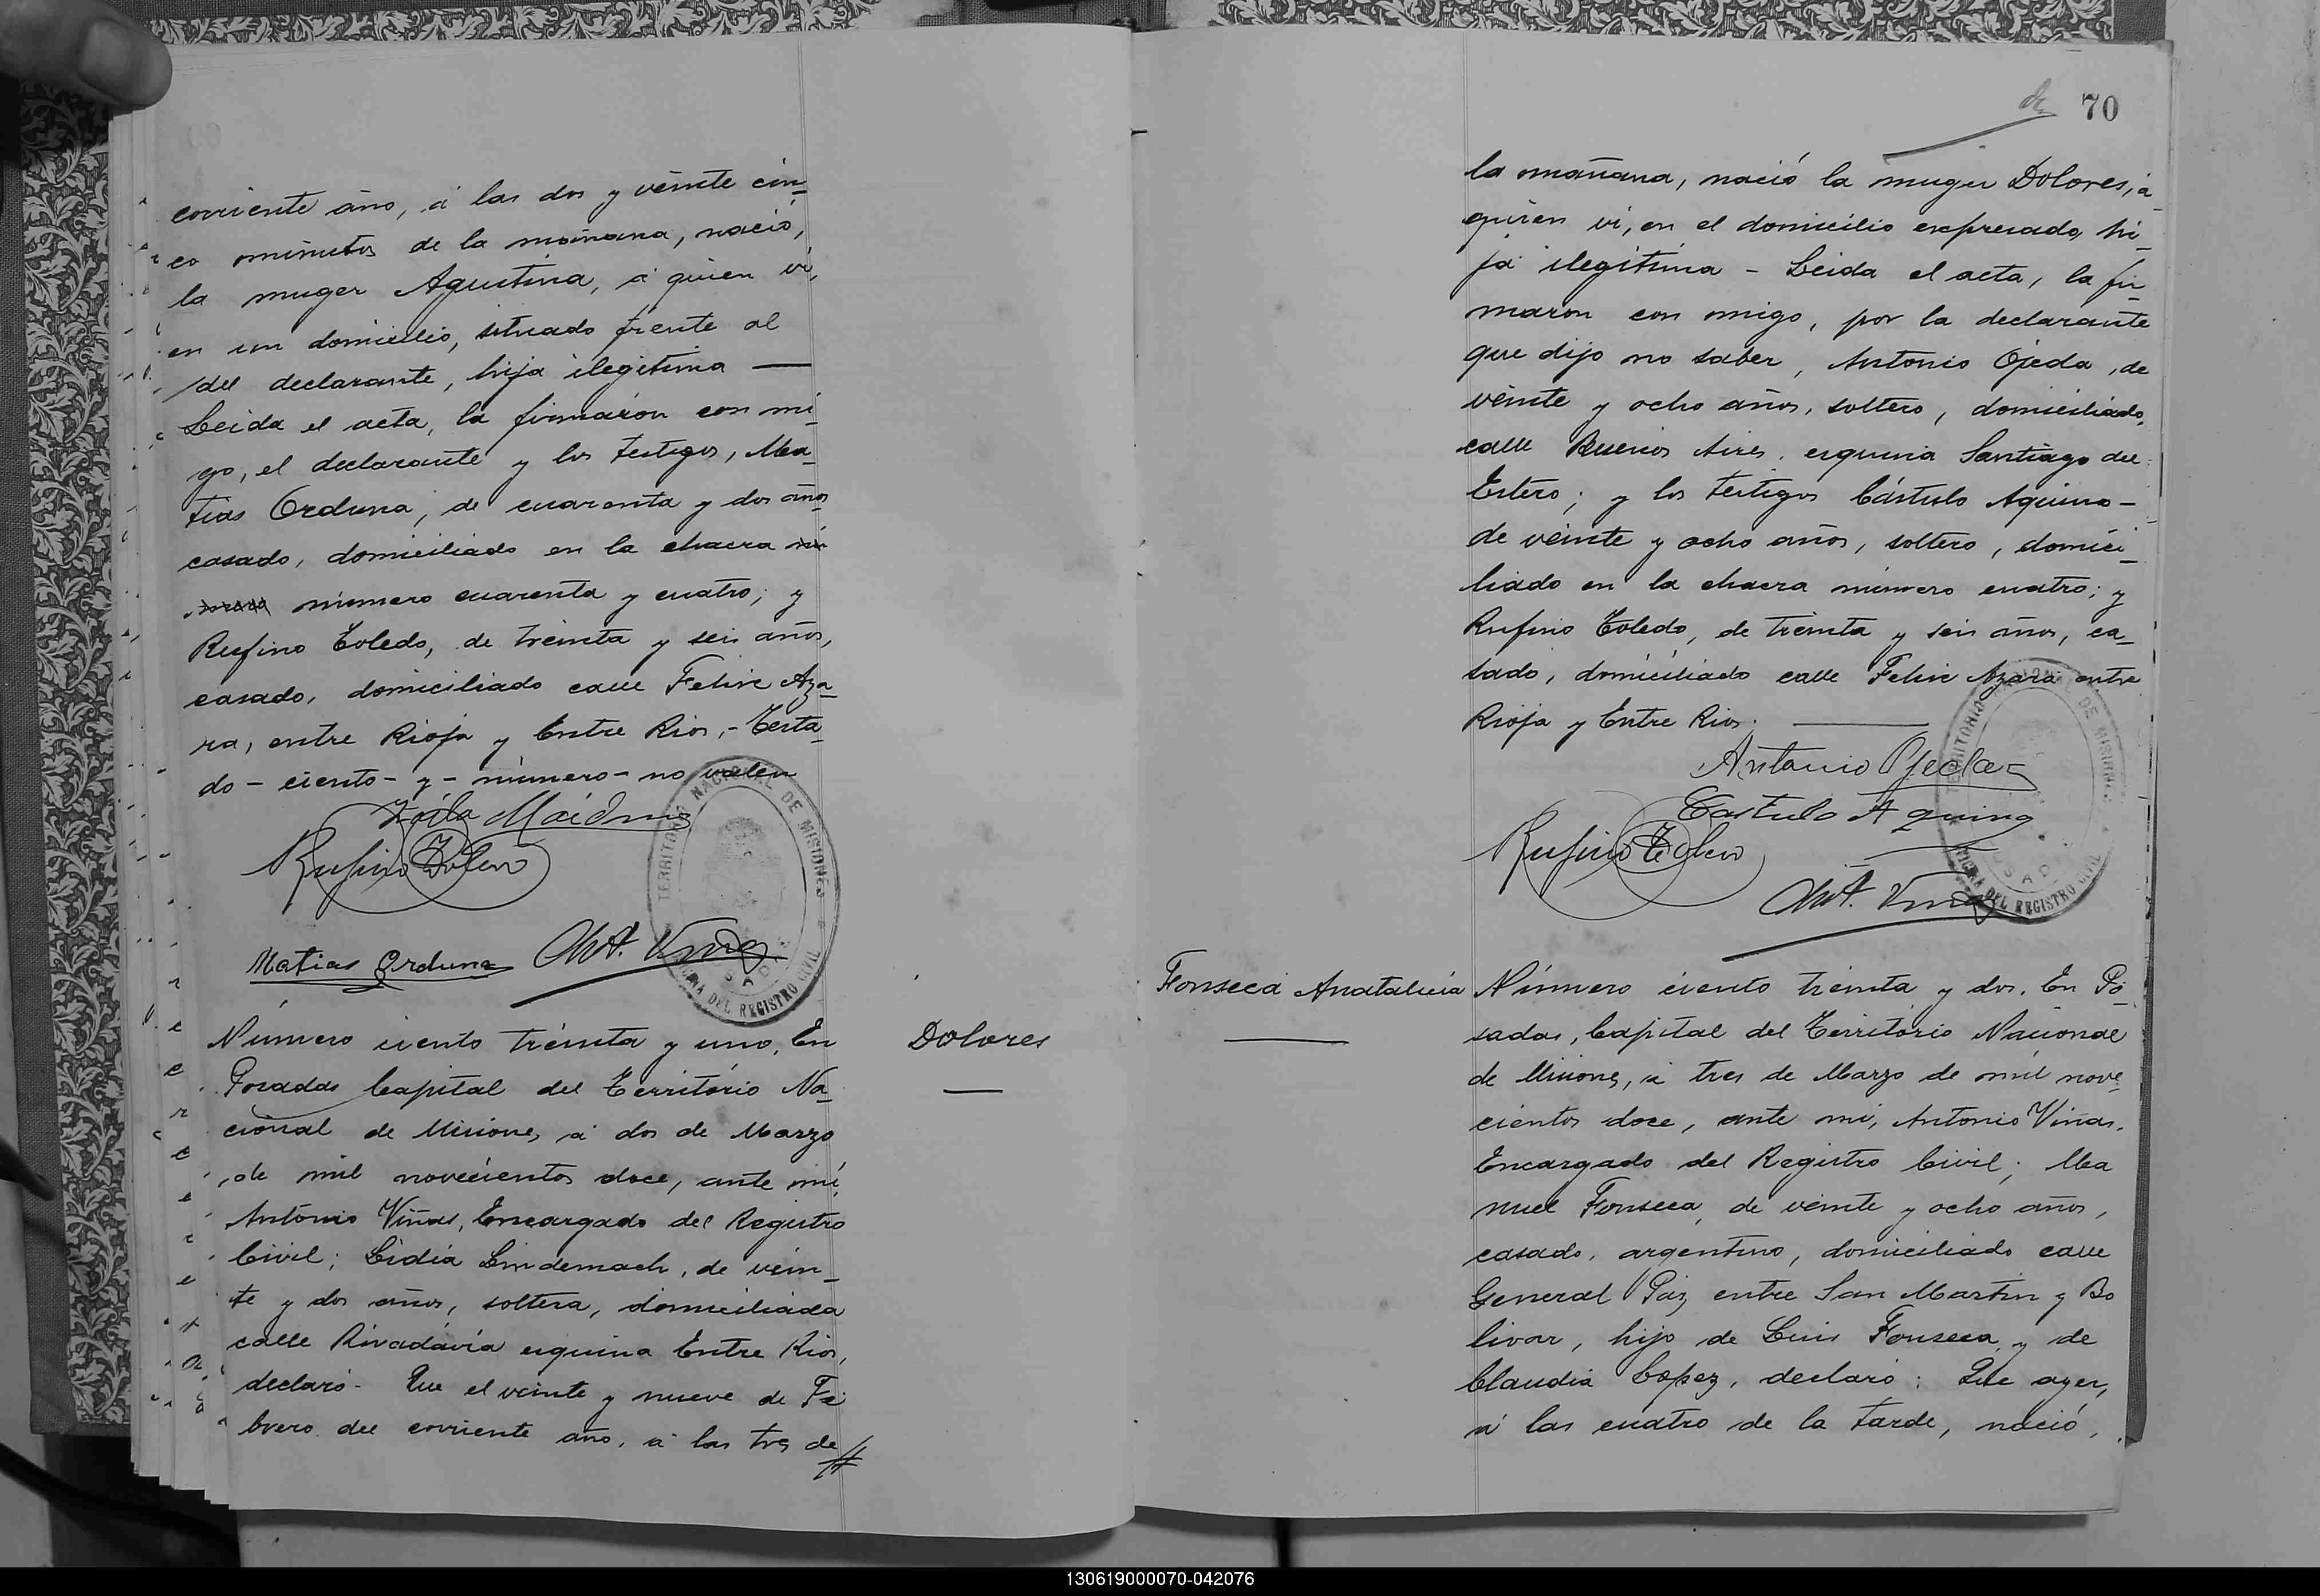 corriente año, á las dos y veinte cin_
co minutos de la mañana, nació,
la muger Agustina, á quien vi,
en un domicilio, situado frente al
del declarante, hija ilegitima —
Leida el acta, la firmaron con mi_
go, el declarante y los testigos, Ma_
tias Orduna, de cuarenta y dos años
casado, domiciliado en la chacra
número cuarenta y cuatro; y
Rufino Toledo, de treinta y seis años,
casado, domiciliado calle Felix Aza_
ra, entre Rioja y Entre Rios,- Testa_
do - ciento - y - número - no valen
Rufino Toledo
Matias Orduna Ant. Viñas
TERRITORIO NACIONAL DE MISIONES
DEL REGISTRO CIVIL
Número ciento treinta y uno. En
Posadas Capital del Territorio Na_
cional de Misiones, á dos de Marzo
de mil novecientos doce, ante mi,
Antonio Viñas, Encargado del Registro
Civil; Lidia Lindemach, de vein_
te y dos años, soltera, domiciliada
calle Rivadavia esquina Entre Rios,
declaró - Que el veinte y nueve de Fe
brero del corriente año, á las tres de //
Dolores
70
la mañana, nació la muger Dolores, á
quien vi, en el domicilio expresado, hi_
ja ilegitima - Leida el acta, la fir_
maron con migo, por la declarante
que dijo no saber, Antonio Ojeda, de
veinte y ocho años, soltero, domiciliado,
calle Buenos Aires, esquina Santiago del
Estero; y los testigos Cástulo Aquino -
de veinte y ocho años, soltero, domici_
liado en la chacra número cuatro; y
Rufino Toledo, de treinta y seis años, ca_
sado, domiciliado calle Felix Azara entre
Rioja y Entre Rios. —
Antonio Ojeda
Castulo Aquino
Rufino Toledo
Ant. Viñas
TERRITORIO NACIONAL DE MISIONES
DEL REGISTRO CIVIL
Fonseca Anatalicia
Número ciento treinta y dos. En Po_
sadas, Capital del Territorio Nacional
de Misiones, á tres de Marzo de mil nove_
cientos doce, ante mi, Antonio Viñas,
Encargado del Registro Civil; Ma
nuel Fonseca, de veinte y ocho años,
casado, argentino, domiciliado calle
General Paz entre San Martin y Bo
livar, hijo de Luis Fonseca, y de
Claudia Lopez, declaró: Que ayer,
á las cuatro de la tarde, nació,
130619000070-042076